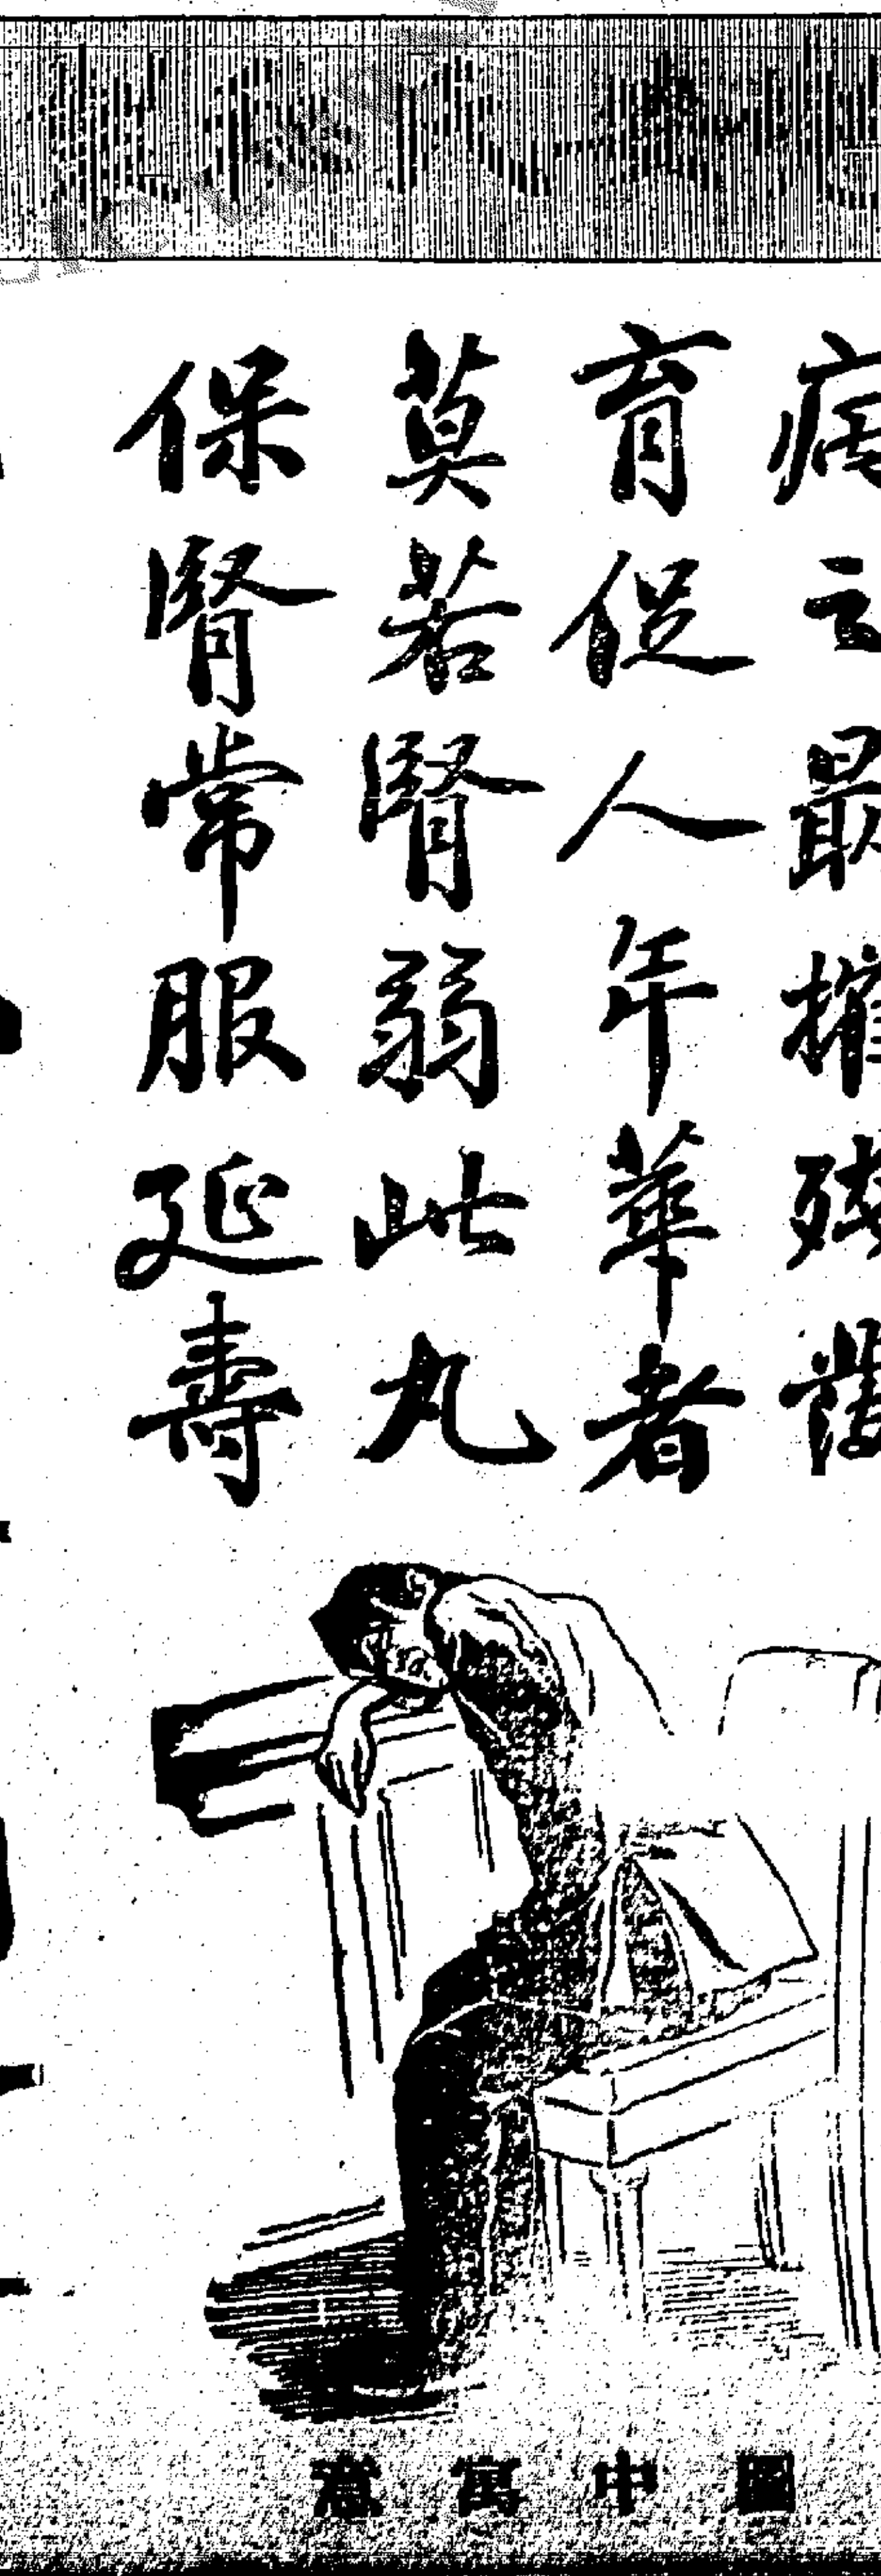 病之最摧殘發
育促人年華者
莫若腎弱此丸
保腎常服延壽
圖中寓意